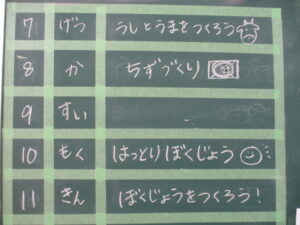 7 げつ うしとうまをつくろう
8 か ちずづくり
9 すい
10 もく はっとりぼくじょう
11 きん ぼくじょうをつくろう!